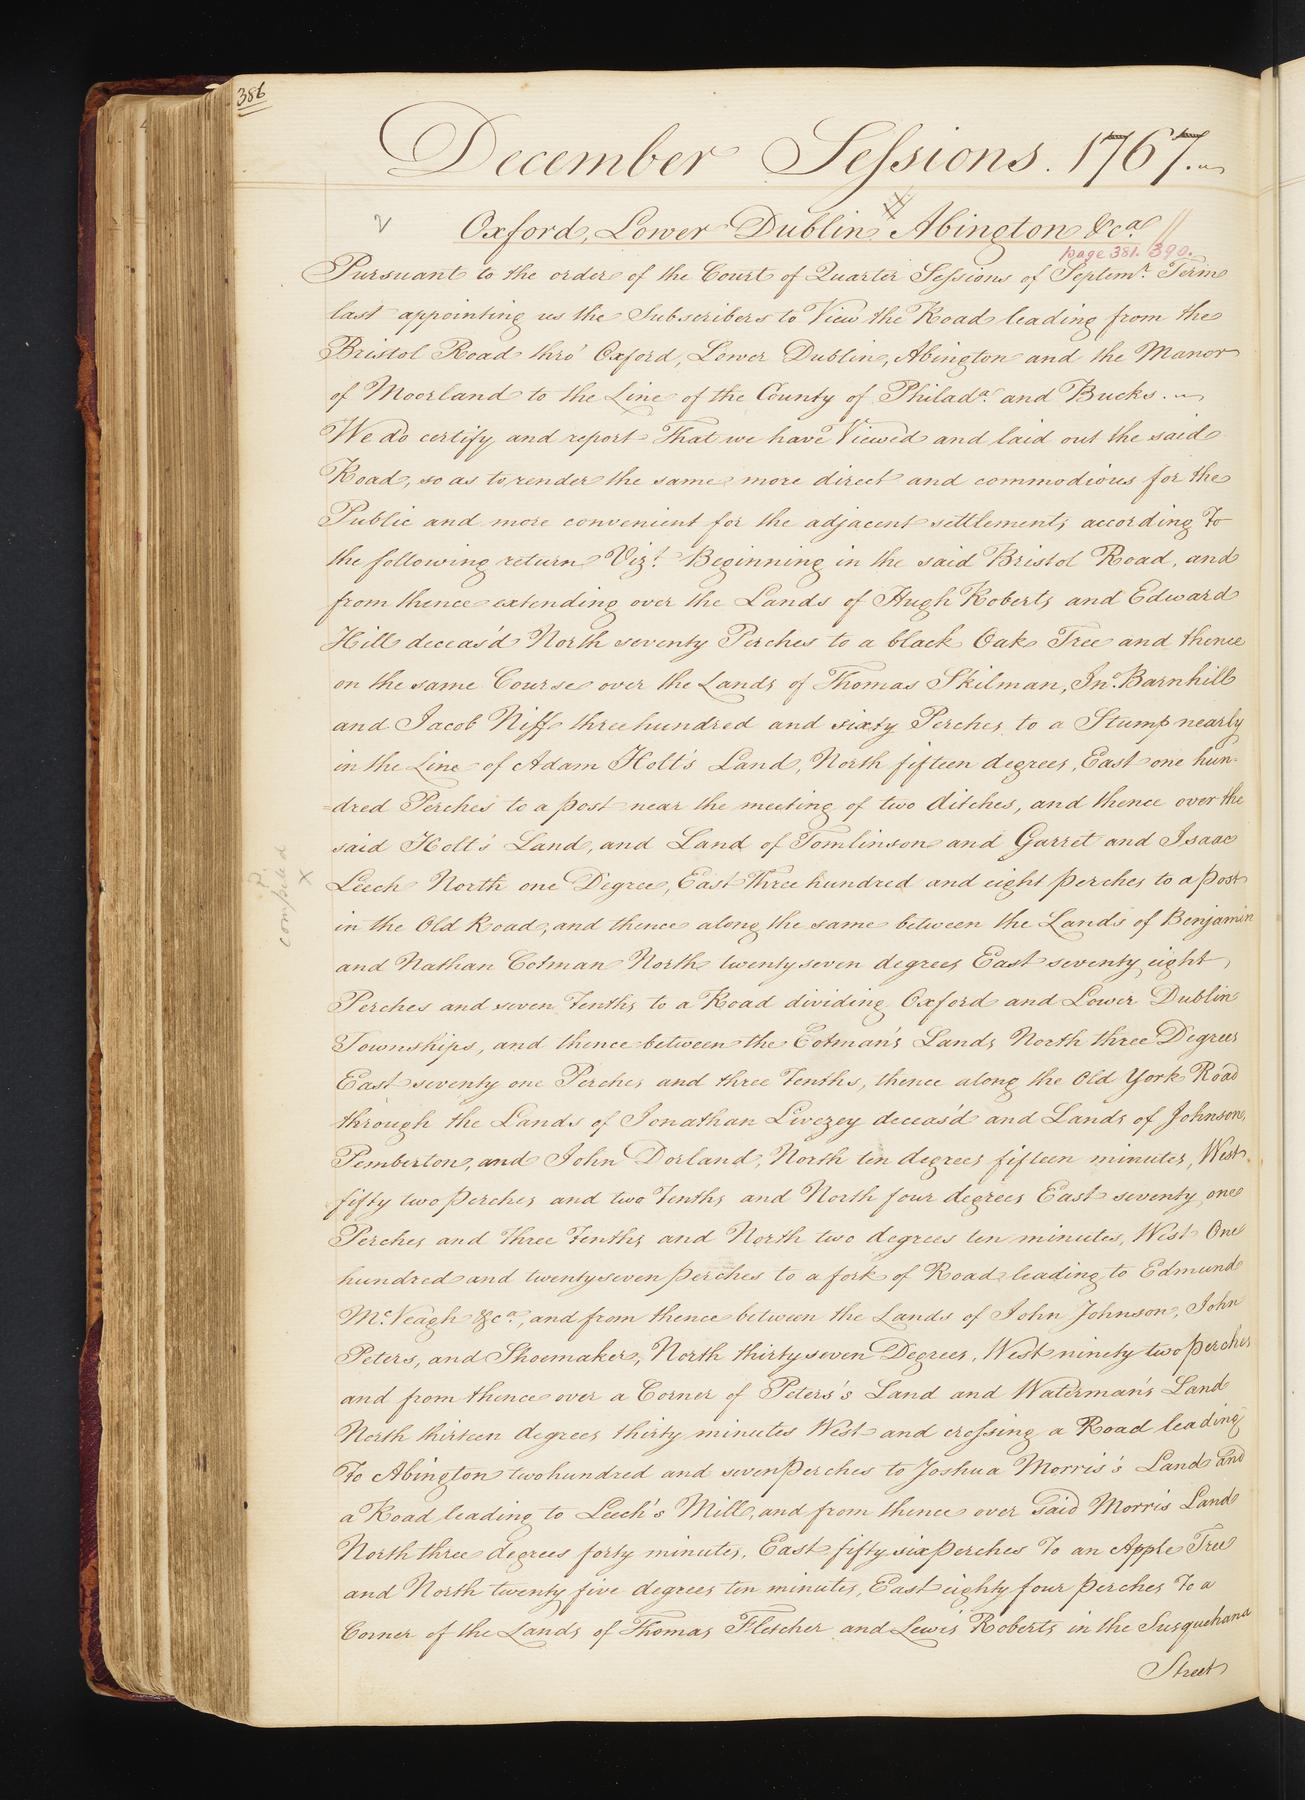 386
December Sessions. 1767.
Oxford, Lower Dublin Abington &ca.
page 381. 390.
Pursuant to the order of the Court of Quarter Sessions of Septemr. Term
last appointing us the Subscribers to View the Road leading from the
Bristol Road thro' Oxford, Lower Dublin, Abington and the Manor
of Moorland to the Line of the County of Philada. and Bucks.
We do certify and report That we have Viewed and laid out the said
Road, so as to render the same more direct and commodious for the
Public and more convenient for the adjacent settlements according To
the following return Vizt. Beginning in the said Bristol Road, and
from thence extending over the Lands of Hugh Roberts and Edward
Hill deceas'd North seventy Perches to a black Oak Tree and thence
on the same Course over the Lands of Thomas Skilman, Jno. Barnhill
and Jacob Niff three hundred and sixty Perches to a Stump nearly
in the Line of Adam Holt's Land, North fifteen degrees, East one hun-
=dred Perches to a post near the meeting of two ditches, and thence over the
said Holt's Land, and Land of Tomlinson and Garret and Isaac
Leech North one Degree, East Three hundred and eight perches to a post
in the Old Road, and thence along the same between the Lands of Benjamin
and Nathan Cotman North twenty seven degrees East seventy eight
Perches and seven Tenths to a Road dividing Oxford and Lower Dublin
Townships, and thence between the Cotman's Lands North three Degrees
East seventy one Perches and three Tenths, thence along the Old York Road
through the Lands of Jonathan Livezey deceas'd and Lands of Johnson,
Pemberton, and John Dorland, North ten degrees fifteen minutes, West
fifty two perches and two Tenths and North four degrees East seventy one
Perches and three Tenths and North two degrees ten minutes, West One
hundred and twenty seven perches to a fork of Road leading to Edmund
McVeagh &ca., and from thence between the Lands of John Johnson, John
Peters, and Shoemaker, North thirty seven Degrees, West ninety two perches
and from thence over a Corner of Peters's Land and Waterman's Land
North thirteen degrees thirty minutes West and crossing a Road leading
To Abington two hundred and seven perches to Joshua Morris's Land and
a Road leading to Leech's Mill, and from thence over said Morris Land
North three degrees forty minutes, East fifty six perches To an Apple Tree
and North twenty five degrees ten minutes, East eighty four perches To a
Corner of the Lands of Thomas Fletcher and Lewis Roberts in the Susquehana
Street